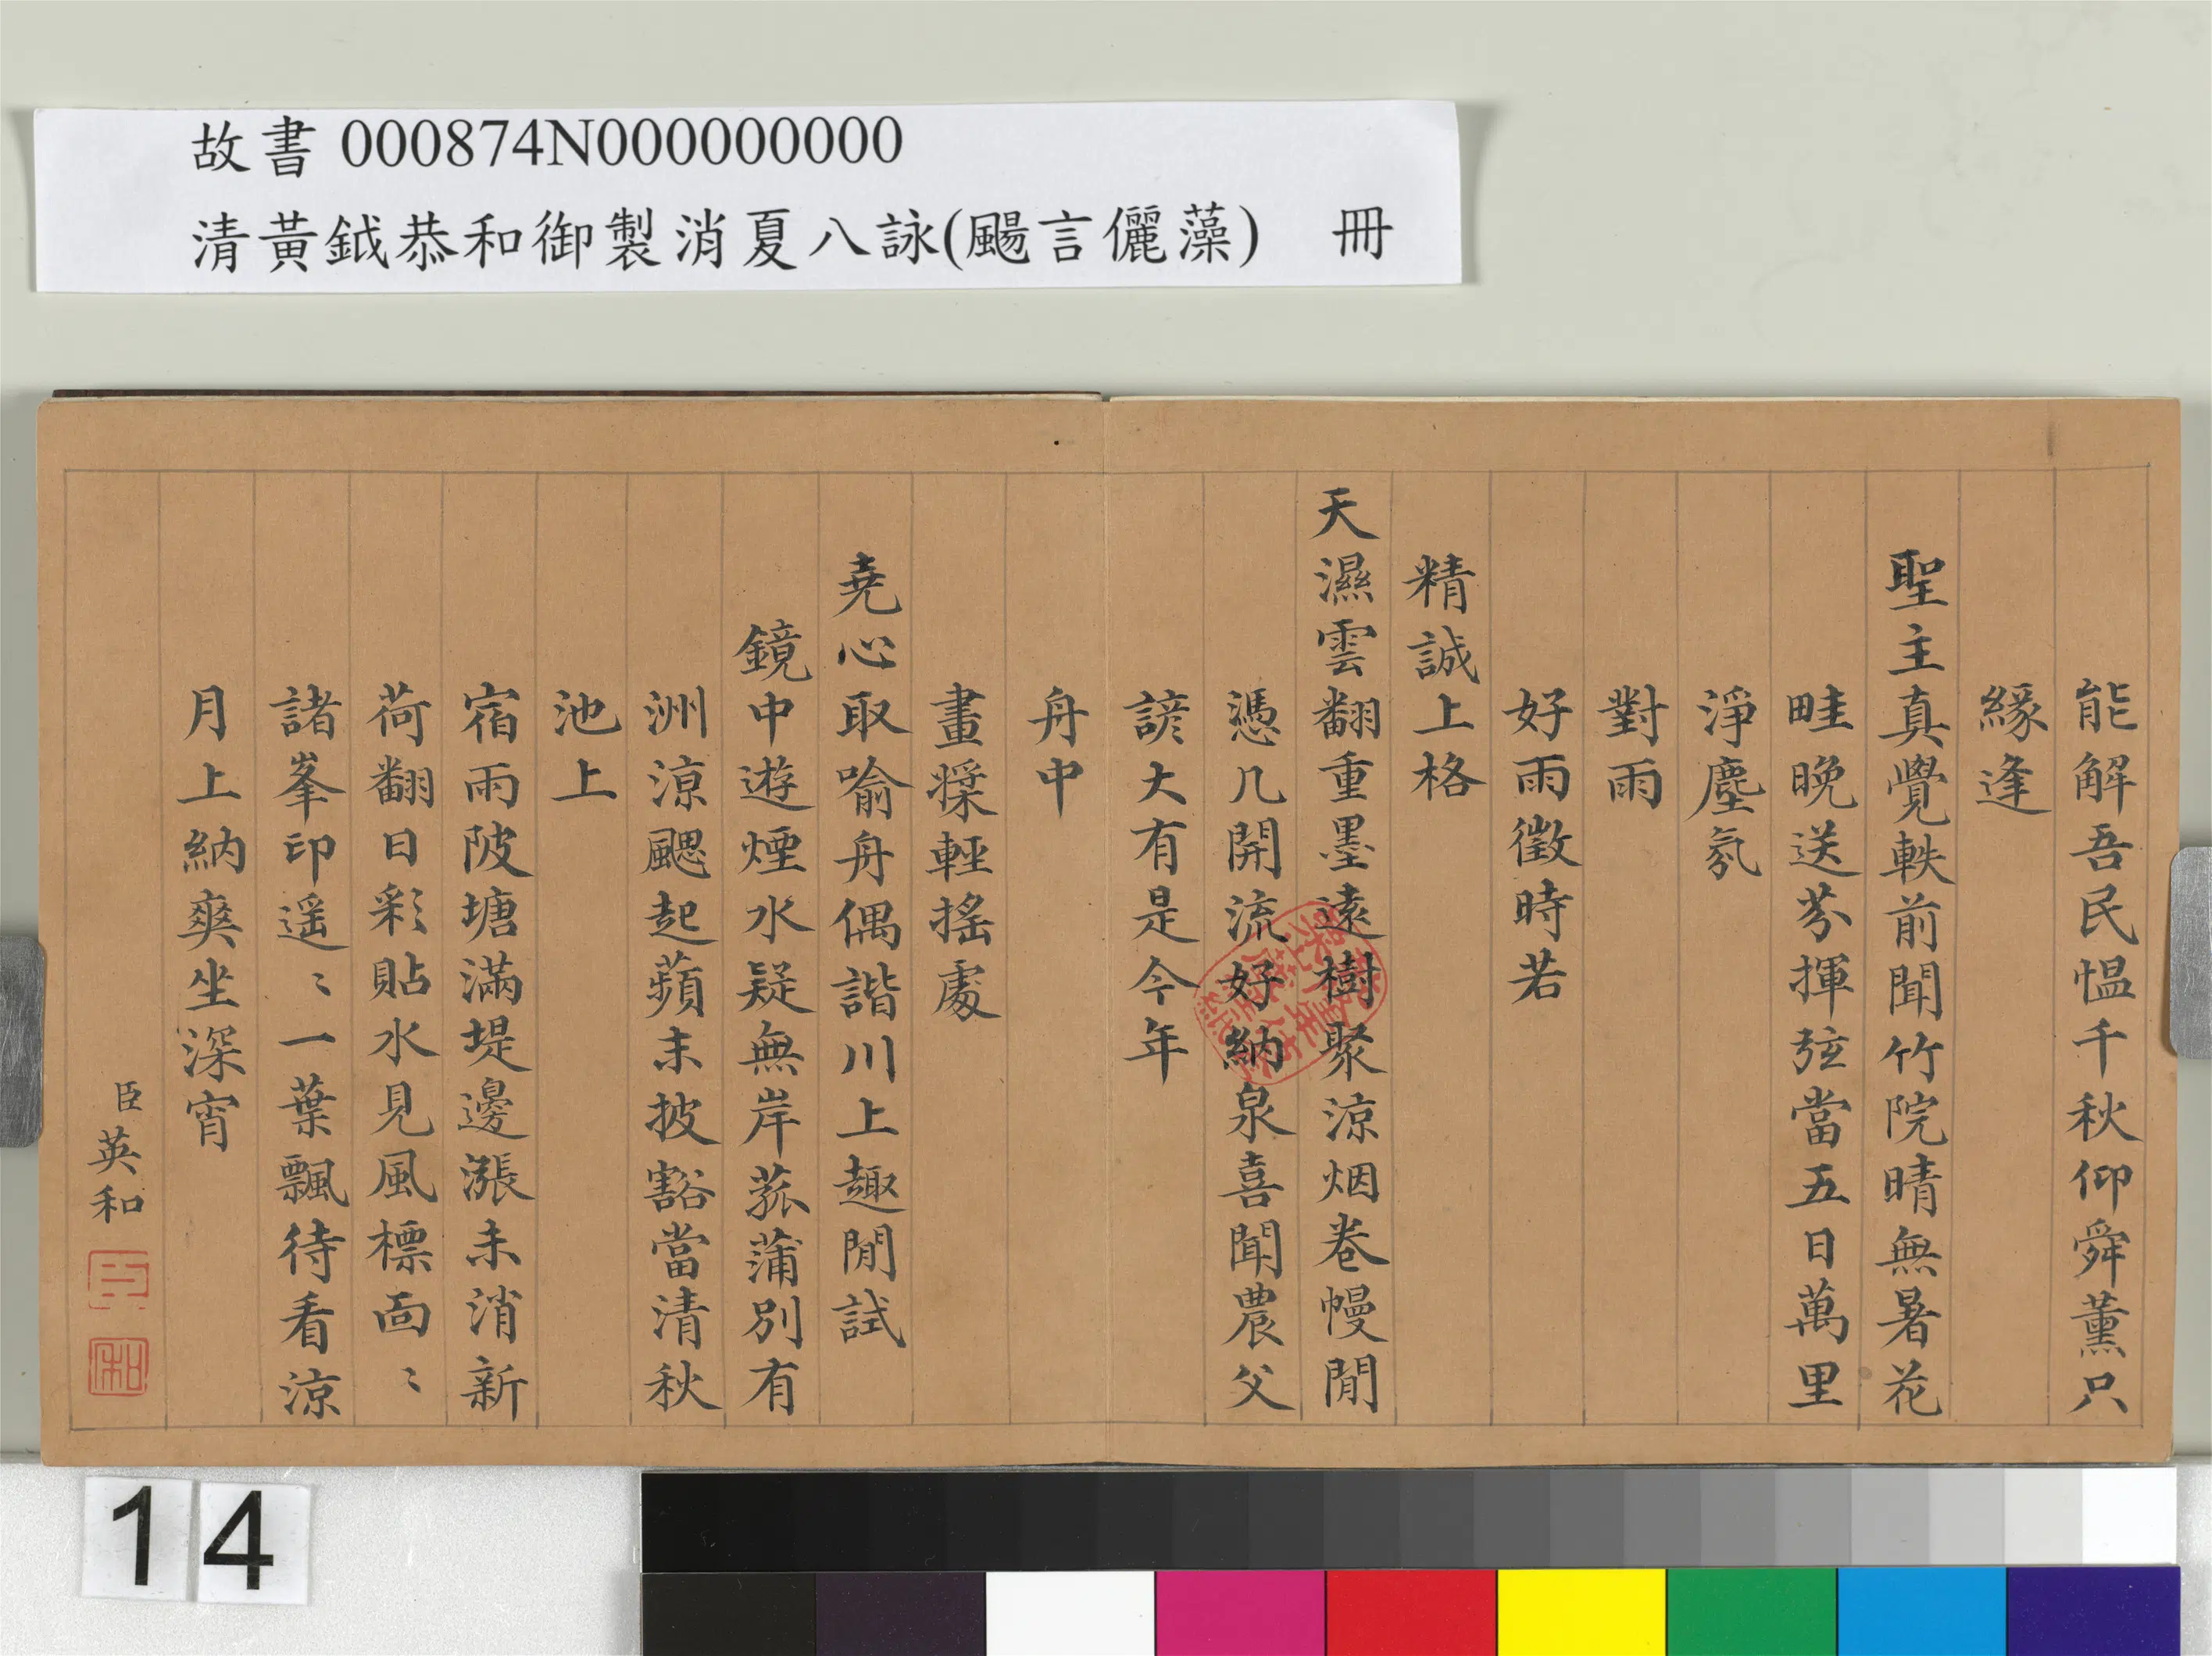 故書000874N000000000
清黃鉞恭和御製消夏八詠(颺言儷藻) 冊
能解吾民慍千秋仰舜薰只
緣逢
聖主真覺軼前聞竹院晴無暑花
畦晚送芬揮弦當五日萬里
淨塵氛
對雨
好雨徵時若
精誠上格
天濕雲翻重墨遠樹聚涼烟卷幔閒
憑几開流好納泉喜聞農父
諺大有是今年
舟中
畫槳輕搖處
堯心取喻舟偶諧川上趣閒試
鏡中遊煙水疑無岸菰蒲別有
洲涼颸起蘋末披豁當清秋
池上
宿雨陂塘滿堤邊漲未消新
荷翻日彩貼水見風標面〻
諸峯印遥〻一葉飄待看涼
月上納爽坐深宵
臣英和
14